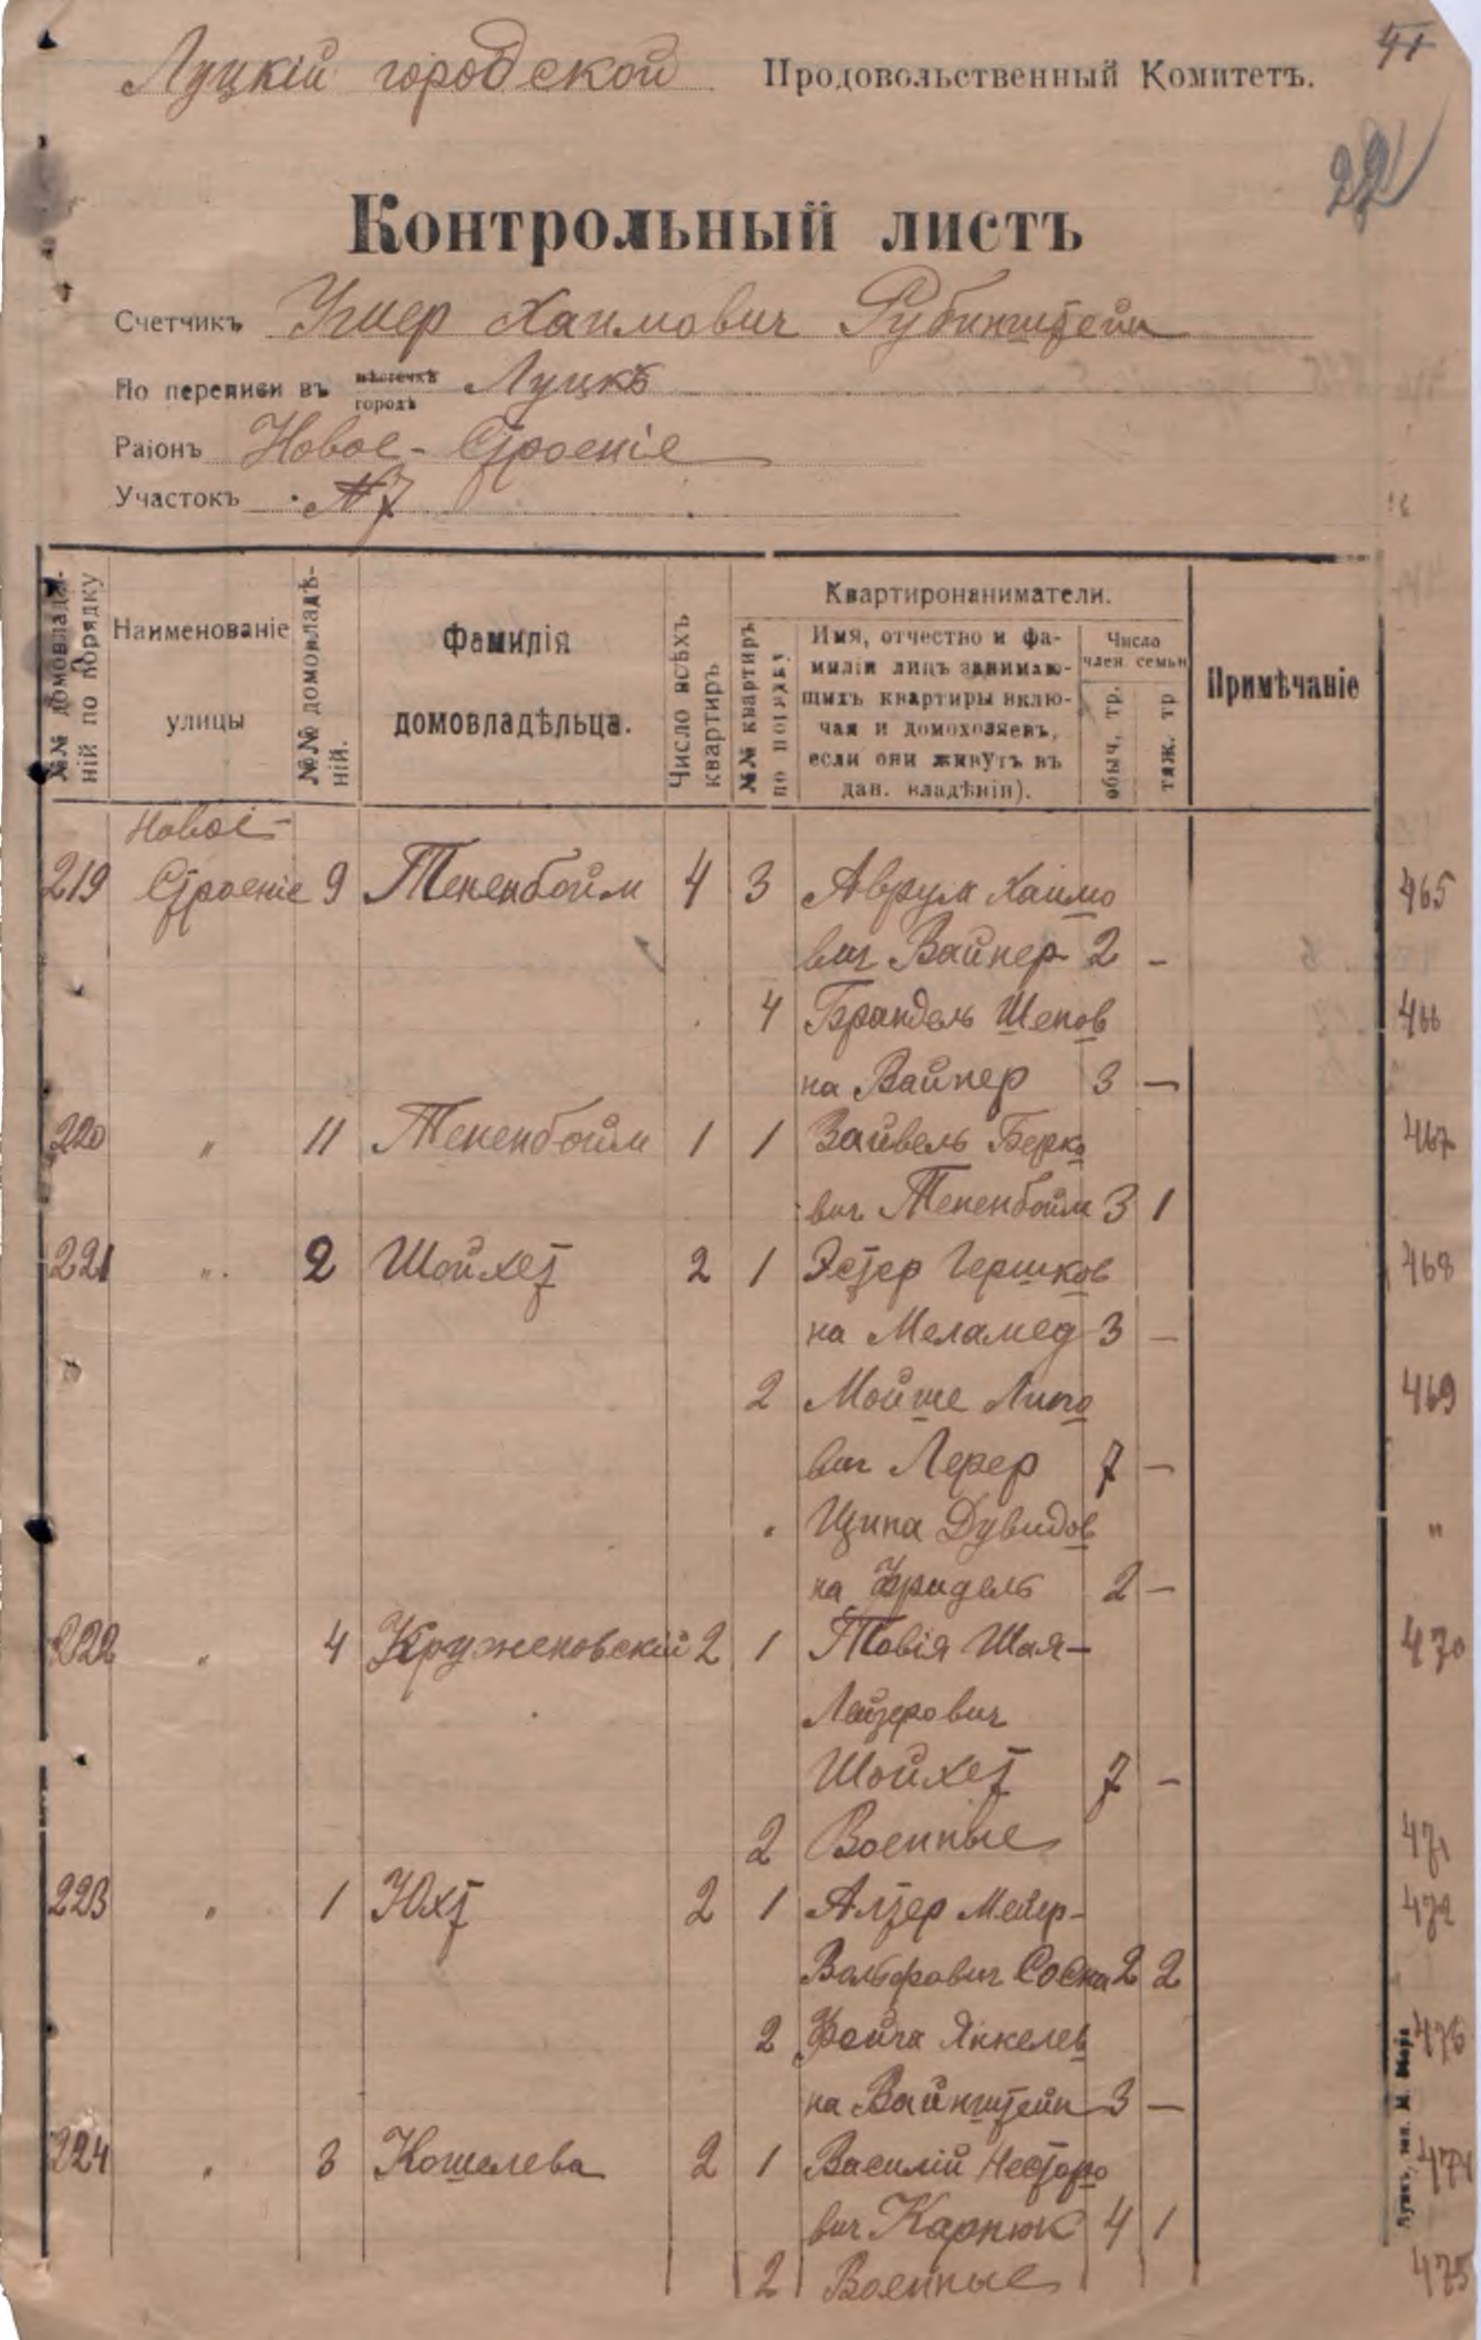 Луцкій городской Продовольственный Комитетъ.
41
22
Контрольный листъ
Счетчикъ Ушер Хаимович Рубинштейн
По переписи въ мѣстечкѣ городѣ Луцкѣ
Раіонъ Новое-Строеніе
Участокъ №7
№№ домовладѣній по порядку
Наименованіе улицы
№№ домовладѣній.
Фамилія домовладѣльца.
Число всѣхъ квартиръ
Квартиронаниматели.
№№ квартиръ по порядку
Имя, отчество и фа-
миліи лицъ занимаю-
щихъ квартиры вклю-
чая и домохозяевъ,
если они живутъ въ
дан. владѣніи).
Число член. семьи
обыч. тр.
тяж. тр
Примѣчаніе
Новое-
219 Строеніе 9 Тененбойм 4 3 Аврум Хаимо 465
вич Вайнер 2 -
4 Брандель Шепов 466
на Вайнер 3 -
220 " 11 Тененбойм 1 1 Зайвель Берко 467
вич Тененбойм 3 1
221 " 2 Шойхет 2 1 Эстер Гершков 468
на Меламед 3 -
2 Мойше Липо 469
вич Лерер 7 -
" Ципа Дувидов "
на Фридель 2 -
222 " 4 Круженовскій 2 1 Товія Шая- 470
Лейзерович
Шойхет 7 -
2 Военные 471
223 " 1 Юхт 2 1 Алтер Мейер- 472
Вольфович Сосна 2 2
2 Фейга Янкелев 473
на Вайнштейн 3 -
224 " 3 Кошелева 2 1 Василій Несторо 474
вич Карпюк 4 1
2 Военные 475